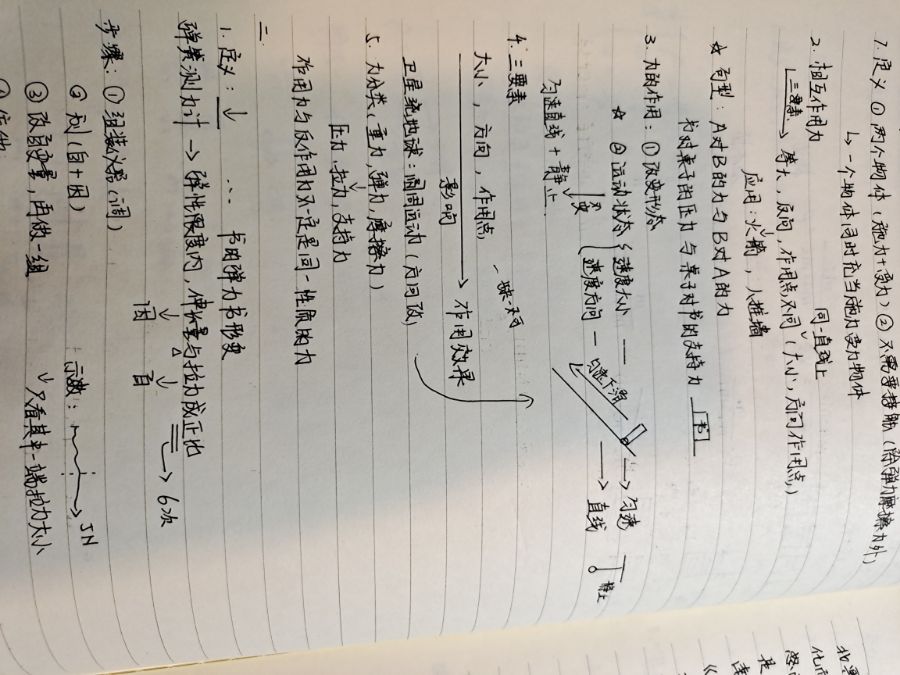 1. 定义 ① 两个物体(施力+受力) ② 不需要接触(除弹力摩擦力外)
↳ 一个物体同时充当施力受力物体
2. 相互作用力 同一直线上
三要素 → 等大,反向,作用点不同(大小,方向作用点)
应用:火箭,人推墙
☆ 句型:A对B的力与B对A的力
书对桌子的压力 与 桌子对书的支持力 书
3. 力的作用:① 改变形态
☆ ② 运动状态 速度大小 — 匀速 静止
改变 速度方向 — → 直线
匀速直线+静止 匀速下滑
4. 三要素
大小,方向,作用点
影响 → 作用效果
卫星绕地球:圆周运动(方向改)
5. 力分类,重力,弹力,摩擦力
压力,拉力,支持力
作用力与反作用力不一定是同一性质的力
二
1. 定义:↓ ∴ 书的弹力书形变
弹簧测力计 → 弹性限度内,伸长量与拉力成正比
因 自 → 6次
步骤:① 组装仪器(调)
② 测(自+因) 示数: → 5N
③ 改自变量,再做一组 ↓ 只看其中一端拉力大小